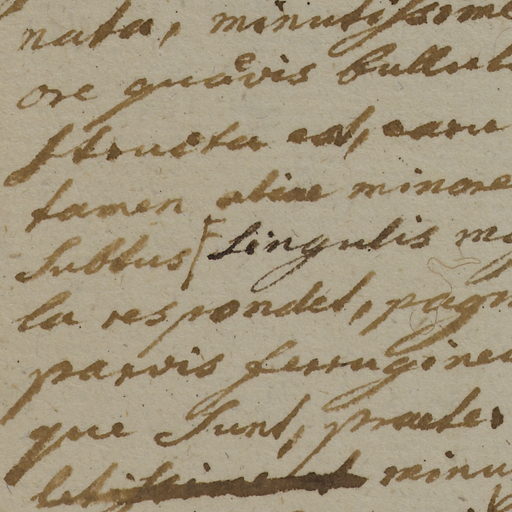 nata, minutissime
ore quavis bullul
structa est, earu
tamen aliae minore
Subtus singulis ma
la respondet, pagi
parvis ferruginei
que sunt, praeter
minu